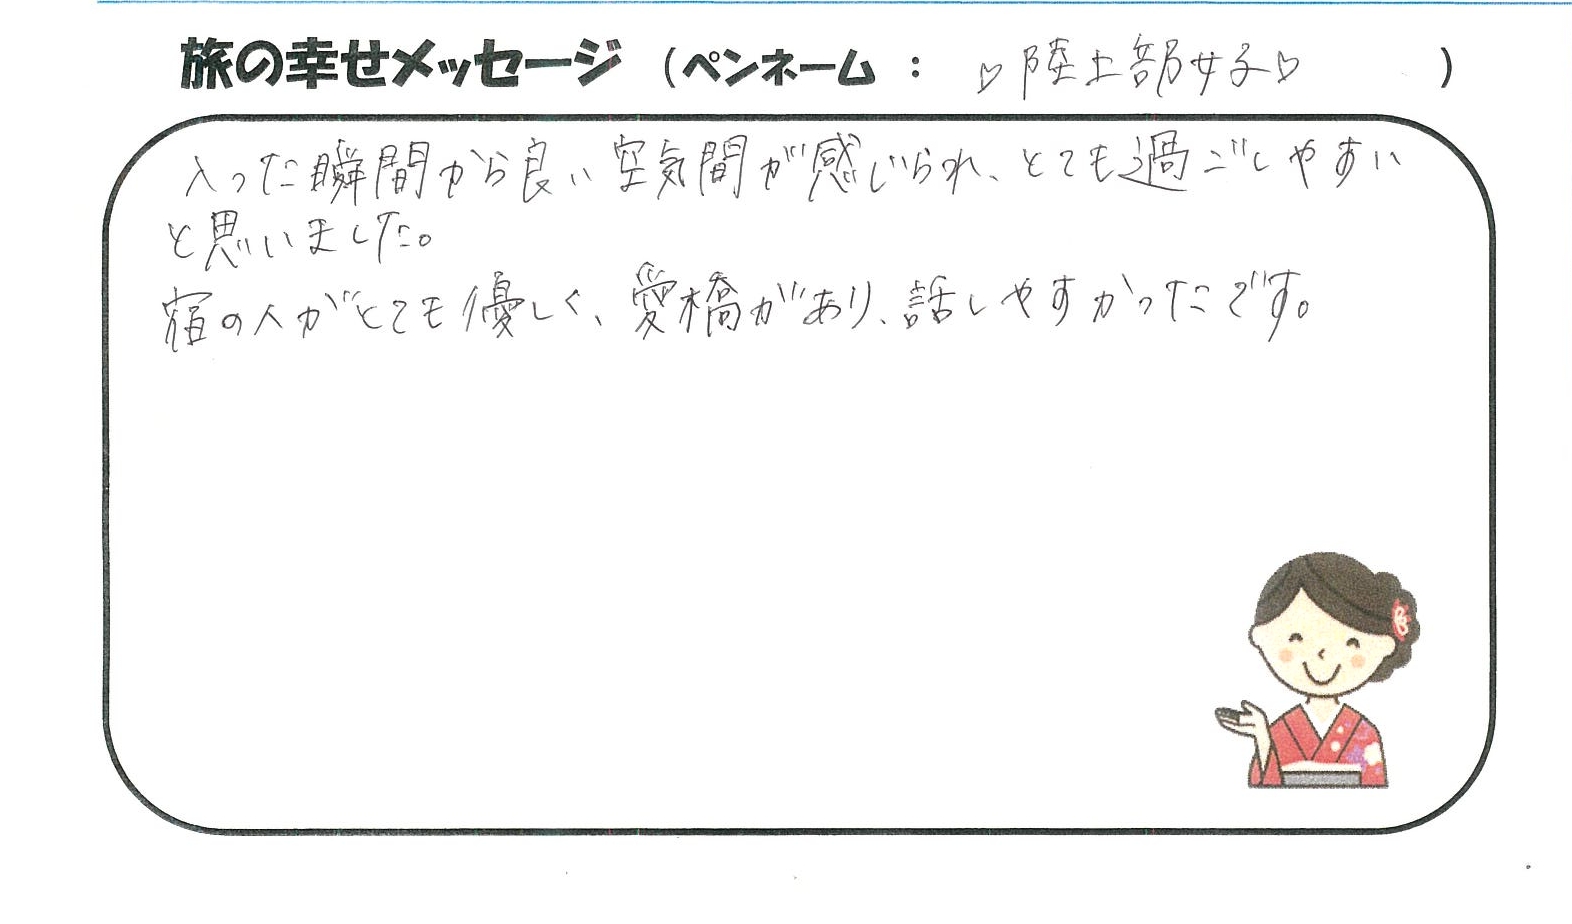 旅の幸せメッセージ (ペンネーム : ♡陸上部女子♡ )
入った瞬間から良い空気間が感じられ、とても過ごしやすい
と思いました。
宿の人がとても優しく、愛橋があり、話しやすかったです。